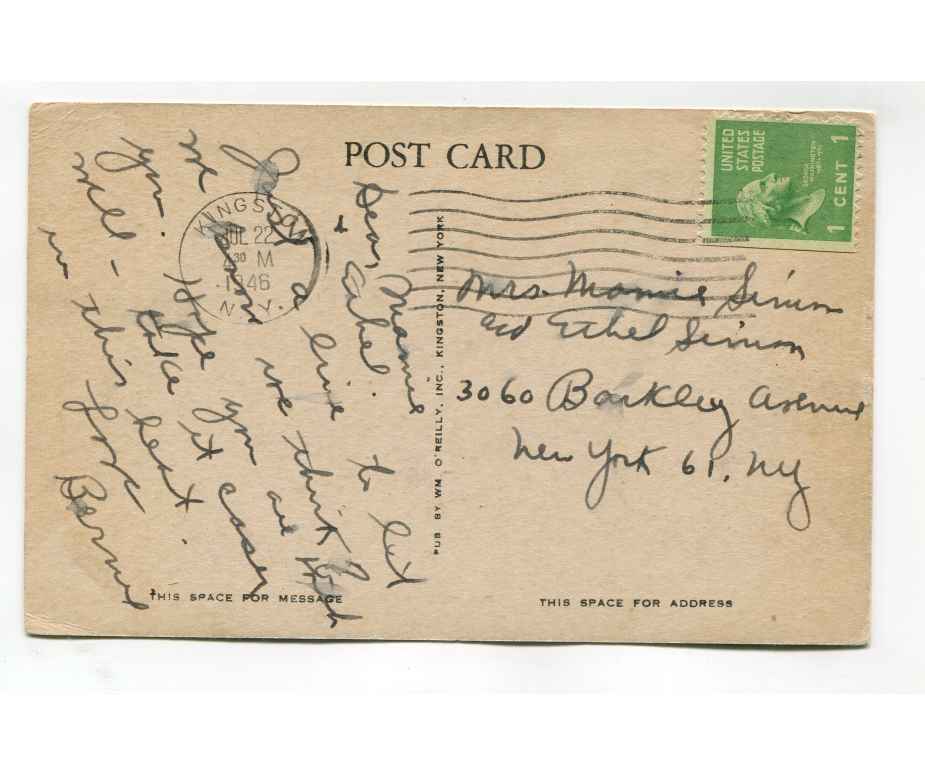 POST CARD
UNITED
STATES
POSTAGE
1 CENT 1
KINGSTON
JUL 22
30 M
1946
N.Y.
Dear Mamie
& Ethel
Just a line to let
we think
you. Hope you are
well - take it easy
in this heat.
love
PUB BY WM O'REILLY, INC., KINGSTON, NEW YORK
Mrs. Mamie Simon
Ethel Simon
3060 Barkley Avenue
New York 61, NY
THIS SPACE FOR MESSAGE
THIS SPACE FOR ADDRESS